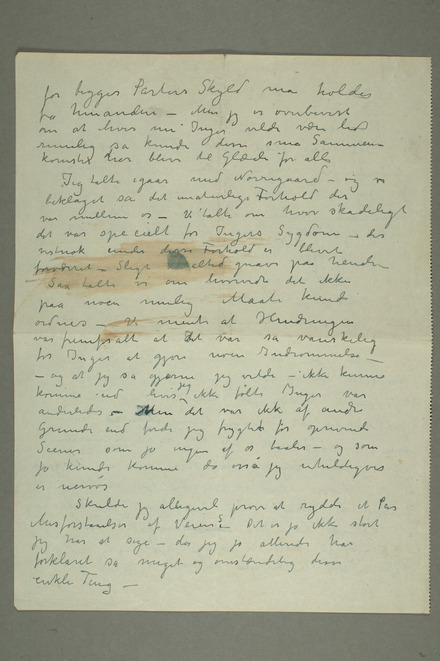 for begges Parters Skyld maa holdes
fra hinanden – Men jeg er overbevist
om at hvis nu Inger vilde være lidt
rimelig saa kunde disse smaa Sammen-
komster her blive til Glæde for alle
Jeg talte igaar med Nørregaard – og vi
beklaget saa det unaturlige Forhold der
var mellem os – Vi talte om hvor skadeligt
det var specielt for Ingers Sygdom – der
under disse Forhold er blevet
forværret – Sligt altid gnave paa hende
Saa talte vi om hvorvidt det ikke
paa noen rimelig Maate kunde
ordnes – Vi mente at Hindringen
var fremforalt at det var saa vanskelig
for Inger at gjøre noen Indrømmelse –
– og at jeg saa gjerne jeg vilde – ikke kunne
komme ud hvis jeg ikke følte Inger var
anderledes – Men det var ikke af andre
Grunde end fordi jeg frygter for oprivende
Scener som jo ingen af os taaler – og som
jo kunde komme da også jeg uheldigvis
er nervøs
Skulde jeg alligevel prøve at rydde et Par
Misforstaaelser af Veien? Det er jo ikke stort
jeg har at sige – da jeg jo allerede har
forklaret saa meget og omstændelig disse
enkle Ting –